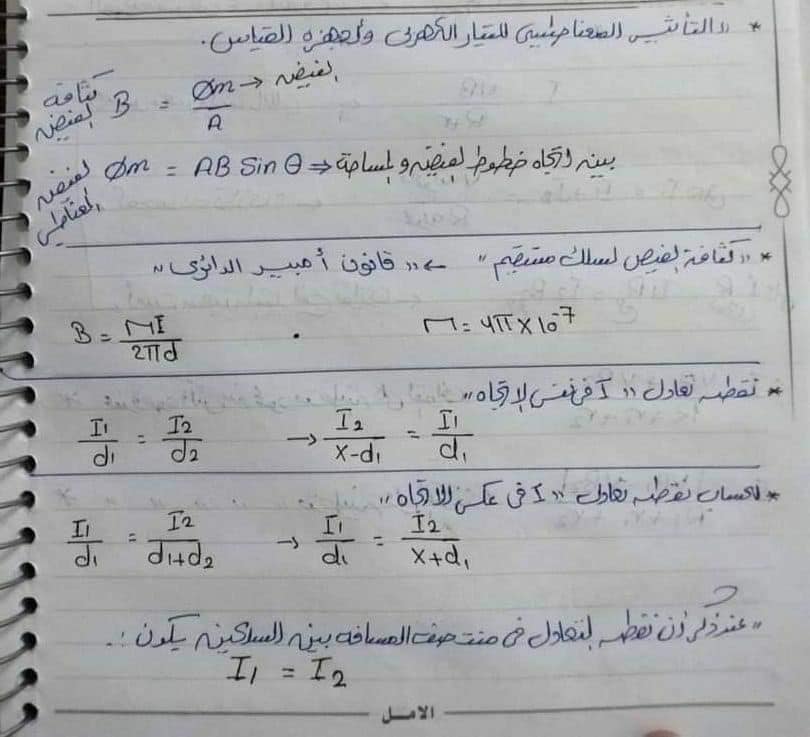 * "التأثير المغناطيسي للتيار الكهربى وأجهزة القياس.
كثافة الفيض B = Øm/A → الفيض
الفيض المغناطيسي Øm = AB Sin θ ⇒ بين اتجاه خطوط الفيض والمساحة
* "كثافة الفيض لسلك مستقيم" ← "قانون أمبير الدائرى"
B = MI/2πd . M = 4π×10⁻⁷
* نقطه تعادل "I فى نفس الإتجاه"
I₁/d₁ = I₂/d₂ → I₂/x-d₁ = I₁/d₁
* لحساب نقطه تعادل "I فى عكس الاتجاه"
I₁/d₁ = I₂/d₁+d₂ → I₁/d₁ = I₂/x+d₁
"عند ذكر أن نقطه التعادل فى منتصف المسافه بين السلكين يكون :.
I₁ = I₂
الامل